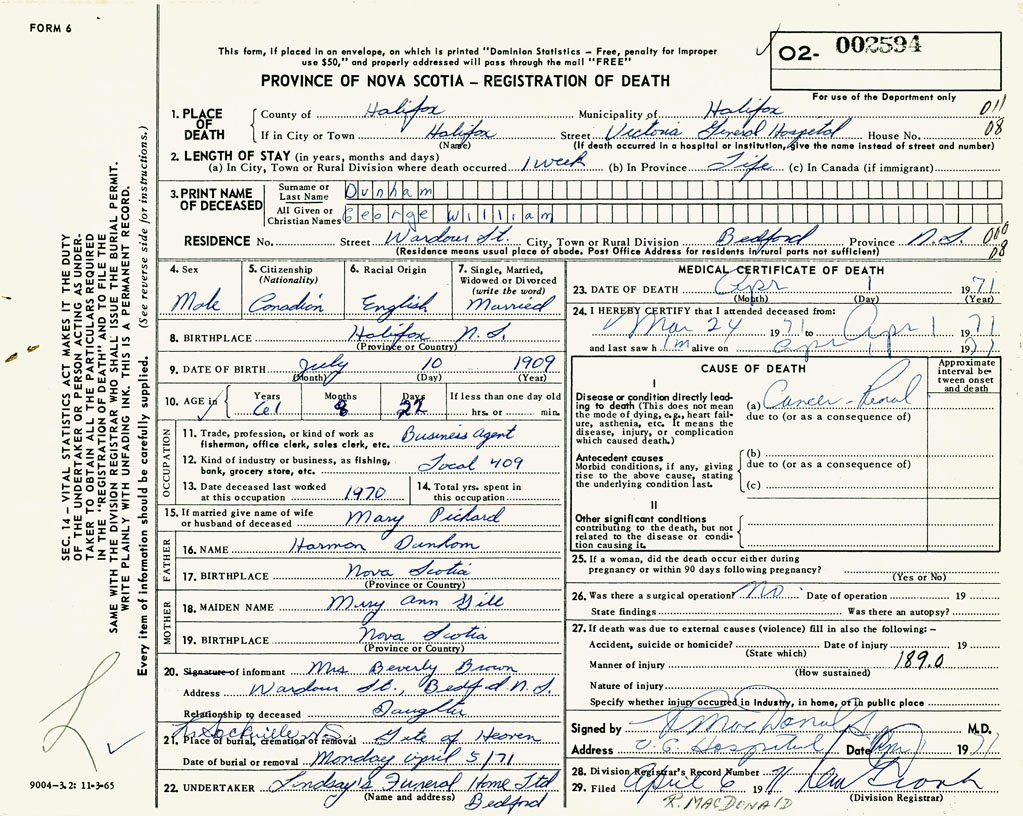 FORM 6
This form, if placed in an envelope, on which is printed "Dominion Statistics – Free, penalty for improper
use $50," and properly addressed will pass through the mail "FREE"
PROVINCE OF NOVA SCOTIA – REGISTRATION OF DEATH
02- 002594
For use of the Department only
1. PLACE OF DEATH County of Halifax Municipality of Halifax 011
If in City or Town Halifax Street Victoria General Hospital House No. 08
(Name) (If death occurred in a hospital or institution, give the name instead of street and number)
2. LENGTH OF STAY (in years, months and days)
(a) In City, Town or Rural Division where death occurred 1 week (b) In Province Life (c) In Canada (if immigrant)
3. PRINT NAME OF DECEASED Surname or Last Name Dunham
All Given or Christian Names George William
RESIDENCE No. Street Wardour St. City, Town or Rural Division Bedford Province N.S.
(Residence means usual place of abode. Post Office Address for residents in rural parts not sufficient) 08
4. Sex Male
5. Citizenship (Nationality) Canadian
6. Racial Origin English
7. Single, Married, Widowed or Divorced (write the word) Married
8. BIRTHPLACE Halifax N.S.
(Province or Country)
9. DATE OF BIRTH July 10 1909
(Month) (Day) (Year)
10. AGE in Years 61 Months 8 Days 22 If less than one day old
hrs. or min.
OCCUPATION
11. Trade, profession, or kind of work as fisherman, office clerk, sales clerk, etc. Business Agent
12. Kind of industry or business, as fishing, bank, grocery store, etc. Local 409
13. Date deceased last worked at this occupation 1970
14. Total yrs. spent in this occupation
15. If married give name of wife or husband of deceased Mary Pickard
FATHER
16. NAME Harmon Dunham
17. BIRTHPLACE Nova Scotia
(Province or Country)
MOTHER
18. MAIDEN NAME Mary Ann Gill
19. BIRTHPLACE Nova Scotia
(Province or Country)
20. Signature of informant Mrs. Beverly Brown
Address Wardour St., Bedford N.S.
Relationship to deceased Daughter
Sackville N.S.
21. Place of burial, cremation or removal Gate of Heaven
Date of burial or removal Monday April 5/71
22. UNDERTAKER Lindsay's Funeral Home Ltd
(Name and address) Bedford
MEDICAL CERTIFICATE OF DEATH
23. DATE OF DEATH Apr 1 1971
(Month) (Day) (Year)
24. I HEREBY CERTIFY that I attended deceased from:
Mar 24 1971 to Apr 1 1971
and last saw him alive on Apr 1 1971
CAUSE OF DEATH
Approximate interval between onset and death
I
Disease or condition directly leading to death (This does not mean the mode of dying, e.g., heart failure, asthenia, etc. It means the disease, injury, or complication which caused death.)
(a) Cancer - Renal
due to (or as a consequence of)
Antecedent causes
Morbid conditions, if any, giving rise to the above cause, stating the underlying condition last.
(b)
due to (or as a consequence of)
(c)
II
Other significant conditions
contributing to the death, but not related to the disease or condition causing it.
25. If a woman, did the death occur either during
pregnancy or within 90 days following pregnancy?
(Yes or No)
26. Was there a surgical operation? No Date of operation 19
State findings Was there an autopsy?
27. If death was due to external causes (violence) fill in also the following: –
Accident, suicide or homicide? Date of injury 19
(State which)
Manner of injury 189.0
(How sustained)
Nature of injury
Specify whether injury occurred in industry, in home, or in public place
Signed by MacDonald M.D.
Address V.G. Hospital Date 1971
28. Division Registrar's Record Number
29. Filed April 6 1971
(Division Registrar)
R. MACDONALD
SEC. 14 – VITAL STATISTICS ACT MAKES IT THE DUTY
OF THE UNDERTAKER OR PERSON ACTING AS UNDER-
TAKER TO OBTAIN ALL THE PARTICULARS REQUIRED
IN THE "REGISTRATION OF DEATH" AND TO FILE THE
SAME WITH THE DIVISION REGISTRAR WHO SHALL ISSUE THE BURIAL PERMIT.
WRITE PLAINLY WITH UNFADING INK. THIS IS A PERMANENT RECORD.
Every item of information should be carefully supplied. (See reverse side for instructions.)
9004-3.2: 11-3-65